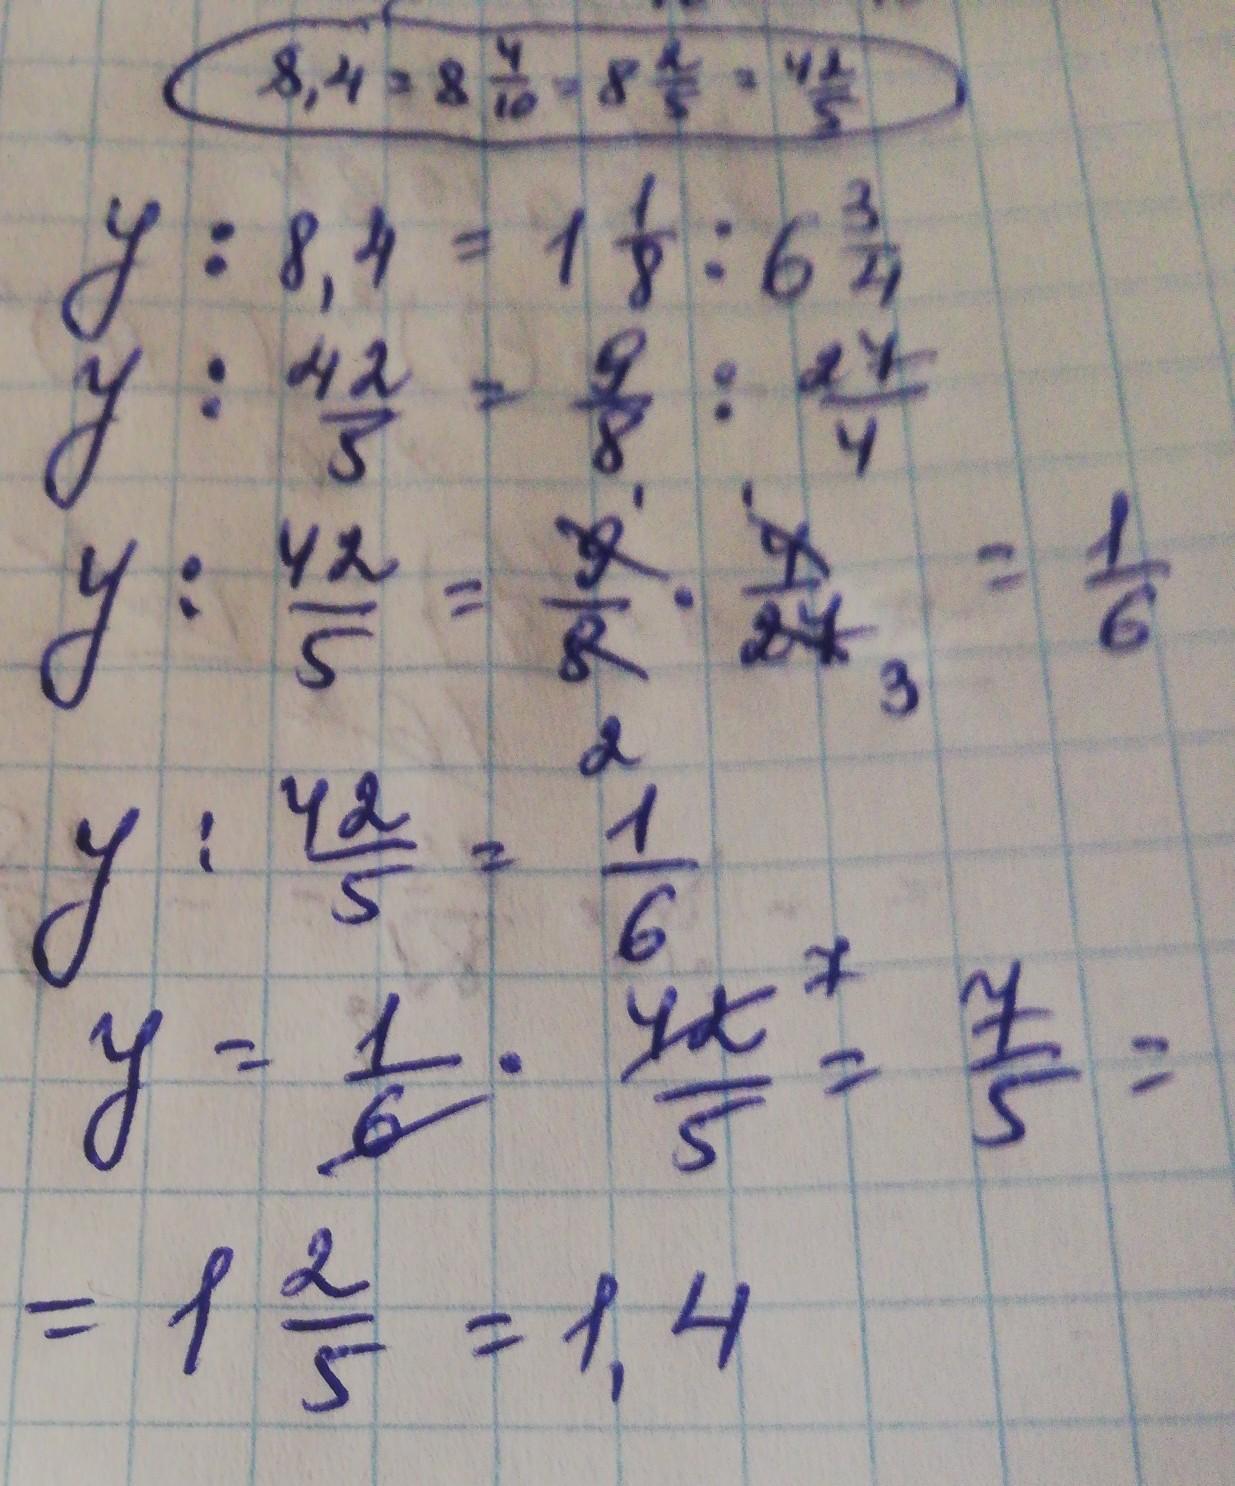 8,4 = 8 4/10 = 8 2/5 = 42/5
y : 8,4 = 1 1/8 : 6 3/4
y : 42/5 = 9/8 : 27/4
y : 42/5 = 9/8 1 2 · 4/27 1 3 = 1/6
y : 42/5 = 1/6
y = 1/6 · 42/5 7 = 7/5 =
= 1 2/5 = 1,4